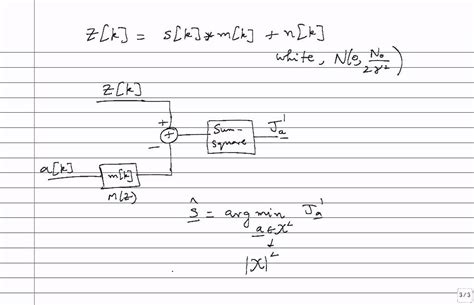 z[k] = s[k]*m[k] + n[k]
white, N(0, N₀/2γ²)
z[k]
+
+
−
Sum-
square
J'ₐ
a[k]
m[k]
M(z)
ŝ = arg min J'ₐ
a ∈ X^L
↓
|X|^L
3/3